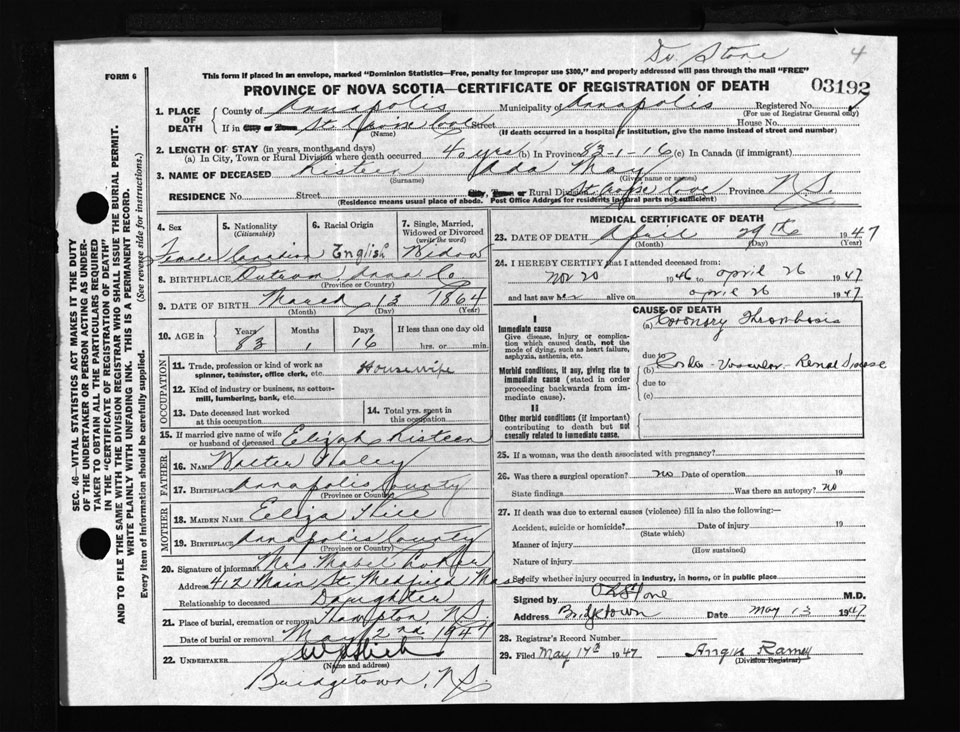 Dr. Stone
4
FORM 6
This form if placed in an envelope, marked "Dominion Statistics—Free, penalty for improper use $300," and properly addressed will pass through the mail "FREE"
PROVINCE OF NOVA SCOTIA—CERTIFICATE OF REGISTRATION OF DEATH
03192
1. PLACE OF DEATH
County of Annapolis Municipality of Annapolis Registered No.
(For use of Registrar General only)
If in City or Town St. Croix Cove Street House No.
(Name) (If death occurred in a hospital or institution, give the name instead of street and number)
2. LENGTH OF STAY (in years, months and days)
(a) In City, Town or Rural Division where death occurred 40 yrs (b) In Province 83-1-16 (c) In Canada (if immigrant)
3. NAME OF DECEASED Risteen Ada May
(Surname) (Given name or names)
RESIDENCE No. Street City, Town or Rural Division St. Croix Cove Province N.S.
(Residence means usual place of abode. Post Office Address for residents in rural parts not sufficient)
4. Sex
Female
5. Nationality
(Citizenship)
Canadian
6. Racial Origin
English
7. Single, Married, Widowed or Divorced
(write the word)
Widow
8. BIRTHPLACE Outram Anna Co
(Province or Country)
9. DATE OF BIRTH March 13 1864
(Month) (Day) (Year)
10. AGE in Years Months Days If less than one day old
83 1 16 hrs. or min.
OCCUPATION
11. Trade, profession or kind of work as spinner, teamster, office clerk, etc. Housewife
12. Kind of industry or business, as cotton-mill, lumbering, bank, etc.
13. Date deceased last worked at this occupation
14. Total yrs. spent in this occupation
15. If married give name of wife or husband of deceased Elizah Risteen
FATHER
16. NAME Walter
17. BIRTHPLACE Annapolis County
(Province or Country)
MOTHER
18. MAIDEN NAME Eliza
19. BIRTHPLACE Annapolis County
(Province or Country)
20. Signature of informant Mrs Mabel
Address 412 Main St. Medfield Mass
Relationship to deceased Daughter
21. Place of burial, cremation or removal Hampton, N.S.
Date of burial or removal May 2nd 1947
22. UNDERTAKER
(Name and address)
Bridgetown, N.S.
MEDICAL CERTIFICATE OF DEATH
23. DATE OF DEATH April 29th 1947
(Month) (Day) (Year)
24. I HEREBY CERTIFY that I attended deceased from:
Nov 20 1946 to april 26 1947
and last saw her alive on april 26 1947
CAUSE OF DEATH
I
Immediate cause
Give disease, injury or complication which caused death, not the mode of dying, such as heart failure, asphyxia, asthenia, etc.
(a) Coronary Thrombosis
due to
Morbid conditions, if any, giving rise to immediate cause (stated in order proceeding backwards from immediate cause).
(b) Cardio-Vascular-Renal Disease
due to
(c)
II
Other morbid conditions (if important) contributing to death but not causally related to immediate cause.
25. If a woman, was the death associated with pregnancy?
26. Was there a surgical operation? no Date of operation 19
State findings Was there an autopsy? no
27. If death was due to external causes (violence) fill in also the following:—
Accident, suicide or homicide? Date of injury 19
(State which)
Manner of injury
(How sustained)
Nature of injury
Specify whether injury occurred in industry, in home, or in public place
Signed by Stone M.D.
Address Bridgetown Date May 13 1947
28. Registrar's Record Number
29. Filed May 17th 1947 Angus Ramey
(Division Registrar)
SEC. 46—VITAL STATISTICS ACT MAKES IT THE DUTY
OF THE UNDERTAKER OR PERSON ACTING AS UNDER-
TAKER TO OBTAIN ALL THE PARTICULARS REQUIRED
IN THE "CERTIFICATE OF REGISTRATION OF DEATH"
AND TO FILE THE SAME WITH THE DIVISION REGISTRAR WHO SHALL ISSUE THE BURIAL PERMIT.
WRITE PLAINLY WITH UNFADING INK. THIS IS A PERMANENT RECORD.
Every item of information should be carefully supplied. (See reverse side for instructions.)